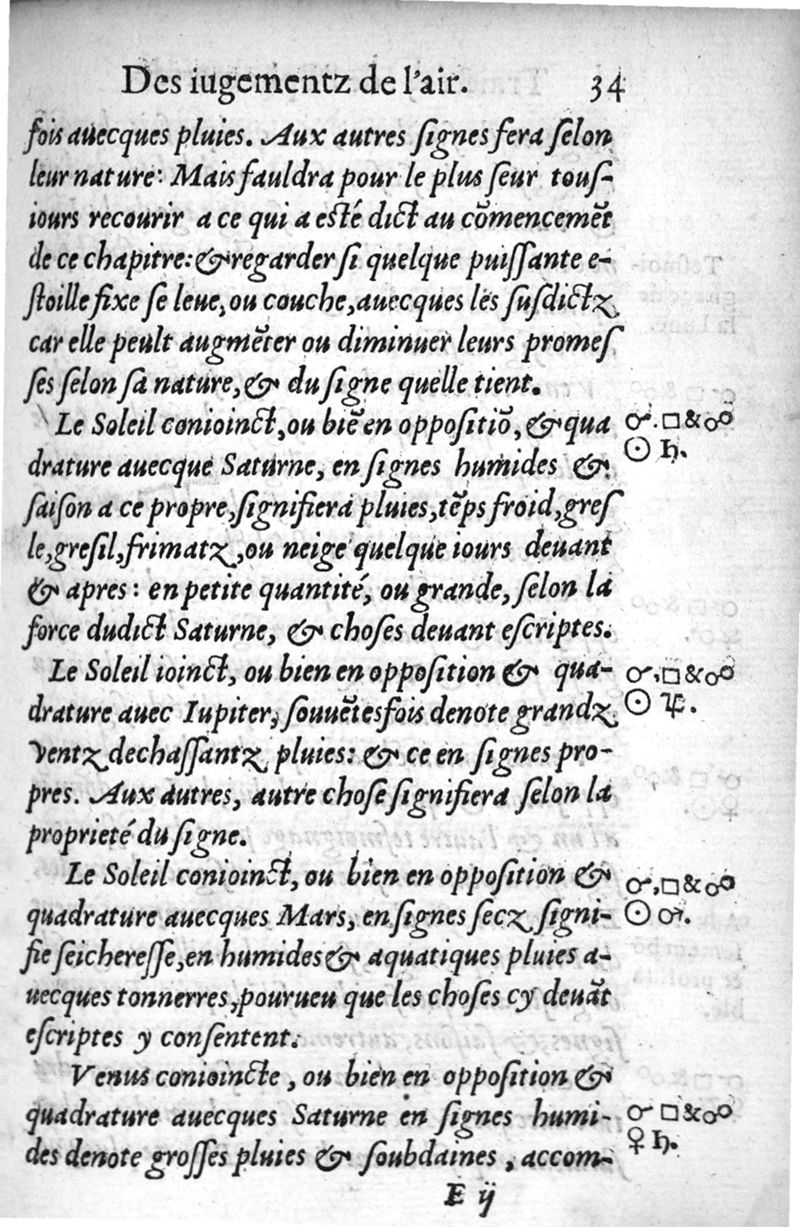 Des iugementz de l'air. 34
fois auecques pluies. Aux autres ſignes ſera ſelon
leur nature: Mais fauldra pour le plus ſeur touſ-
iours recourir a ce qui a eſté dict au cōmencemēt
de ce chapitre: & regarder ſi quelque puiſſante e-
ſtoille fixe ſe leue, ou couche, auecques les ſuſdictz,
car elle peult augmēter ou diminuer leurs promeſ
ſes ſelon ſa nature, & du ſigne quelle tient.
Le Soleil conioinct, ou biē en oppoſitiō, & qua ☌. □ & ☍
drature auecque Saturne, en ſignes humides & ☉ ♄.
ſaiſon a ce propre, ſignifiera pluies, tēps froid, greſ
le, greſil, frimatz, ou neige quelque iours deuant
& apres: en petite quantité, ou grande, ſelon la
force dudict Saturne, & choſes deuant eſcriptes.
Le Soleil ioinct, ou bien en oppoſition & qua- ☌. □ & ☍
drature auec Iupiter, ſouuētesfois denote grandz ☉ ♃.
ventz dechaſſantz pluies: & ce en ſignes pro-
pres. Aux autres, autre choſe ſignifiera ſelon la
proprieté du ſigne.
Le Soleil conioinct, ou bien en oppoſition & ☌. □ & ☍
quadrature auecques Mars, en ſignes ſecz ſigni- ☉ ♂.
fie ſeichereſſe, en humides & aquatiques pluies a-
uecques tonnerres, pourueu que les choſes cy deuāt
eſcriptes y conſentent.
Venus conioincte, ou bien en oppoſition &
quadrature auecques Saturne en ſignes humi- ☌ □ & ☍
des denote groſſes pluies & ſoubdaines, accom- ♀ ♄.
E ij